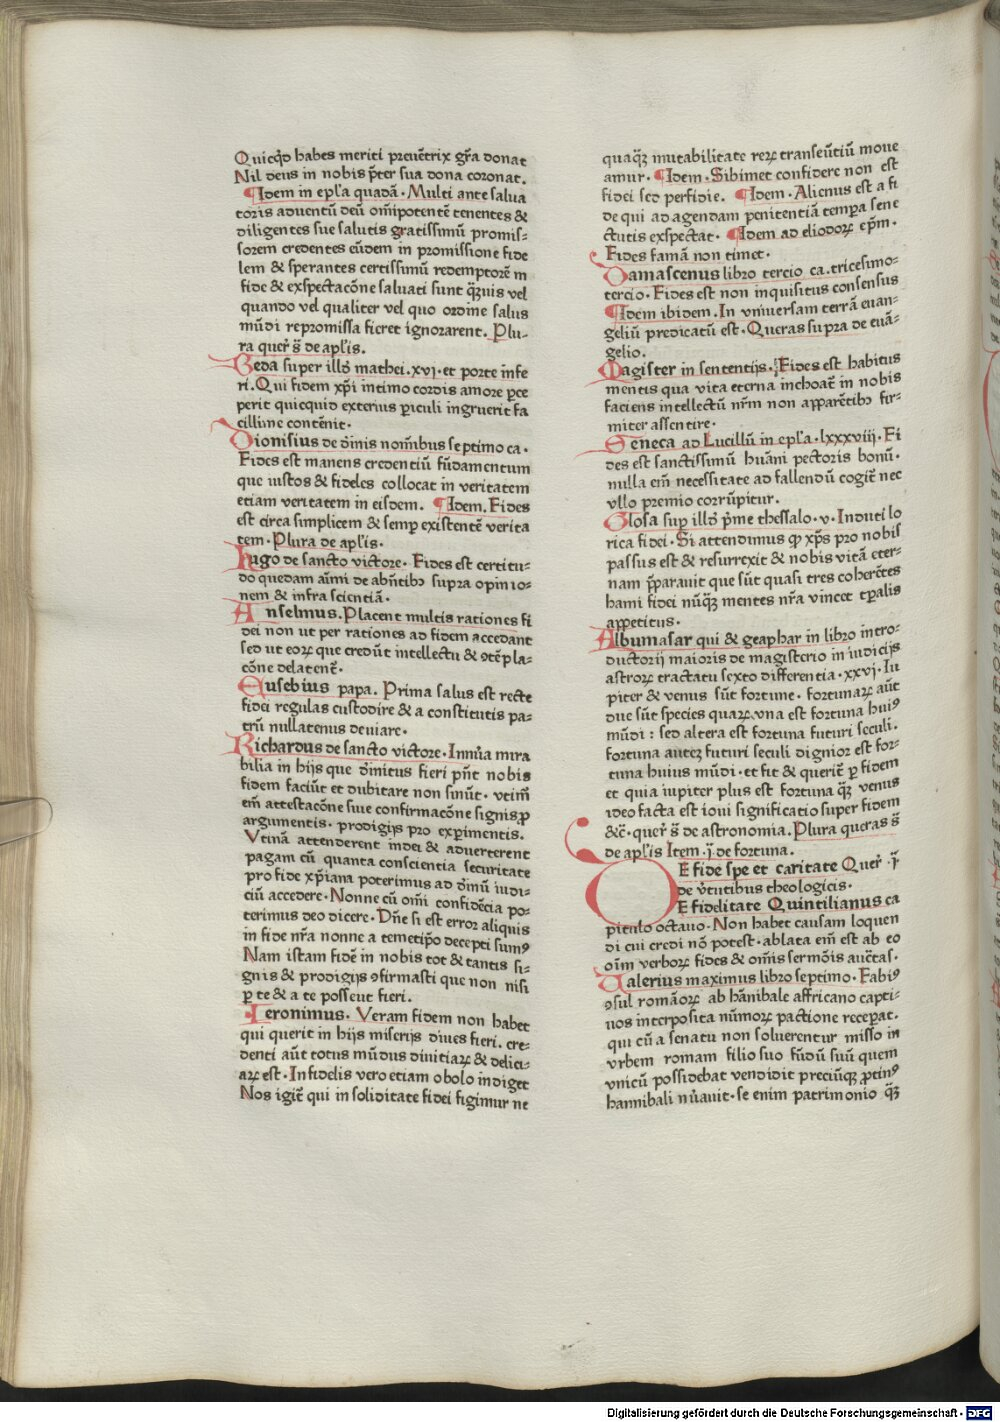 Quicqd̄ habes meriti p̄uētrix gr̄a donat
Nil deus in nobis p̄ter sua dona coronat.
¶Idem in epl'a quadā. Multi ante salua
toris aduentū deū om̄ipotentē tenentes &
diligentes sue salutis gratissimū promis-
sorem credentes eūdem in promissione fide
lem & sperantes certissimū redemptorē in
fide & exspectacōne saluati sunt q̄ȝuis vel
quando vel qualiter vel quo ordine salus
mūdi repromissa fieret ignorarent. Plu-
ra quer̄ s̄ de apl'is.
Beda super illd̄ mathei.xvj.et porte infe
ri. Qui fidem xp̄i intimo cordis amore ꝑce
perit quicquid exterius ꝑiculi ingruerit fa
cillime contēnit.
Dionisius de diuīnis nom̄ibus septimo ca.
Fides est manens credentiū fūdamentum
que iustos & fideles collocat in veritatem
etiam veritatem in eisdem. ¶Idem. Fides
est circa simplicem & semꝑ existentē verita
tem. Plura de apl'is.
Hugo de sancto victore. Fides est certitu-
do quedam aīmi de abn̄tibꝫ supra opinio-
nem & infra scientiā.
Anselmus. Placent multis rationes fi
dei non ut per rationes ad fidem accedant
sed ut eoꝝ que credūt intellectu & ꝯtēpla-
cōne delatent̄.
Eusebius papa. Prima salus est recte
fidei regulas custodire & a constitutis pa-
trū nullatenus deuiare.
Richardus de sancto victore. Innūa mira
bilia in hijs que diuīnitus fieri pn̄t nobis
fidem faciūt et dubitare non sinūt. vtim̄
em̄ attestacōne siue confirmacōne signis ꝓ
argumentis. prodigijs pro exꝑimentis.
Vtinā attenderent iudei & aduerterent
pagani cū quanta conscientia securitate
pro fide xp̄iana poterimus ad diuīnū iudi-
ciū accedere. Nonne cū om̄i confidēcia po-
terimus deo dicere. Dn̄e si est error aliquis
in fide nr̄a nonne a temetip̄o decepti sumꝰ
Nam istam fidē in nobis tot & tantis si-
gnis & prodigijs ꝯfirmasti que non nisi
ꝑ te & a te possent fieri.
Ieronimus. Veram fidem non habet
qui querit in hijs miserijs diues fieri. cre-
denti aūt totus mūdus diuitiaꝝ & delici-
aꝝ est. Infidelis vero etiam obolo indiget
Nos igit̄ qui in soliditate fidei figimur ne
quaq̄ȝ mutabilitate reꝝ transeūtiū moue
amur. ¶Idem. Sibimet confidere non est
fidei sed perfidie. ¶Idem. Alienus est a fi
de qui ad agendam penitentiā temꝑa sene
ctutis exspectat. ¶Idem ad eliodoꝝ ep̄m.
Fides famā non timet.
Damascenus libro tercio ca.tricesimo-
tercio. Fides est non inquisitus consensus
¶Idem ibidem. In vniuersam terrā euan-
geliū predicatū est. Queras supra de euā-
gelio.
Magister in sententijs. Fides est habitus
mentis qua vita eterna inchoat̄ in nobis
faciens intellectū nr̄m non apparētibꝫ fir-
miter assentire.
Seneca ad Lucillū in epl'a.lxxxviij. Fi
des est sanctissimū hūani pectoris bonū.
nulla em̄ necessitate ad fallendū cogit̄ nec
vllo premio corrūpitur.
Glosa suꝑ illd̄ p̄me thessalo.v. Induti lo
rica fidei. Si attendimus ꝙ xp̄s pro nobis
passus est & resurrexit & nobis vitā eter-
nam p̄parauit que sūt quasi tres coherētes
hami fidei nūq̄ȝ mentes nr̄a vincet tꝑalis
appetitus.
Albumasar qui & geaphar in libro intro-
ductorij maioris de magisterio in iudicijs
astroꝝ tractatu sexto differentia.xxvj. Iu
piter & venus sūt fortune. fortunaꝝ aūt
due sūt species quaꝝ.vna est fortuna huiꝰ
mūdi: sed altera est fortuna futuri seculi.
fortuna autēȝ futuri seculi dignior est for-
tuna huius mūdi. et fit & querit̄ ꝑ fidem
et quia iupiter plus est fortuna q̄ȝ venus
ideo facta est ioui significatio super fidem
&c̄. quer̄ s̄ de astronomia. Plura queras s̄
de apl'is Item.j̄.de fortuna.
DE fide spe et caritate Quer̄.j̄
de v̄tutibus theologicis.
DE fidelitate Quintilianus ca
pitulo octauo. Non habet causam loquen
di cui credi nō potest. ablata em̄ est ab eo
oīm verboꝝ fides & om̄is sermōis auc̄tas.
Ualerius maximus libro septimo. Fabiꝰ
ꝯsul romāoꝝ ab hānibale affricano capti-
uos interposita nūmoꝝ pactione receꝑat.
qui cū a senatu non soluerentur misso in
vrbem romam filio suo fūdū suū quem
vnicū possidebat vendidit preciūqȝ ꝓtinꝰ
hannibali nūauit. se enim patrimonio q̄ȝ
Digitalisierung gefördert durch die Deutsche Forschungsgemeinschaft - DFG